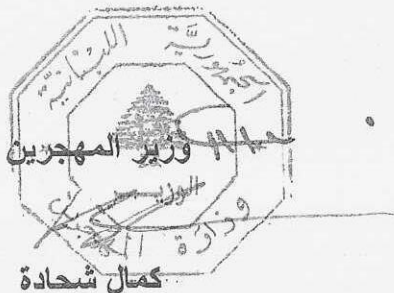 الجمهورية اللبنانية
وزير المهجرين
الوزير
وزارة المهجرين
كمال شحادة